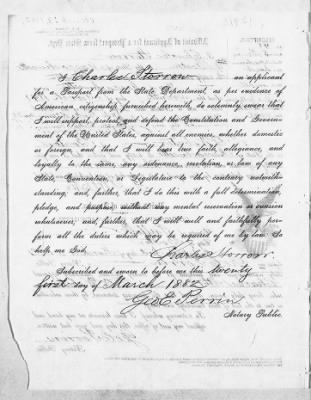 I Charles Storrow an applicant
for a Passport from the State Department, as per evidence of
American citizenship furnished herewith, do solemnly swear that
I will support, protect and defend the Constitution and Govern-
ment of the United States, against all enemies, whether domestic
or foreign, and that I will bear true faith, allegiance, and
loyalty to the same any ordinance, resolution, or law of any
State, Convention, or Legislature to the contrary notwith-
standing, and, further, that I do this with a full determination,
pledge, and purpose without any mental reservation or evasion
whatsoever; and, further, that I will well and faithfully per-
form all the duties which may be required of me by law. So
help me God.
Charles Storrow
Subscribed and sworn to before me this twenty
first day of March 1882
Geo E Perrin
Notary Public.